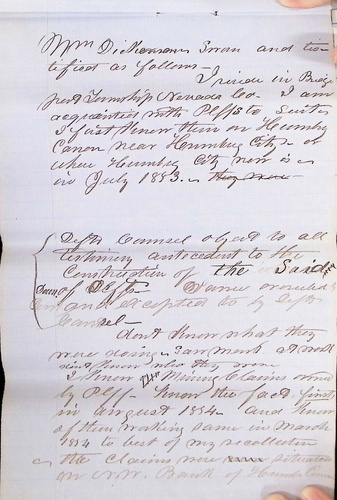 Wm Dickerman Sworn and tes-
tified as follows -
I reside in Bridge
port Township Nevada Co - I am
acquainted with Plffs to Suit
I first knew them on Humbug
Canon near Humbug City - or
where Humbug City now is -
in July 1853. - they were
Defts Counsel object to all
testimony antecedent to the
Construction of the Said
of Defts overruled
and excepted to by Defts
Counsel -
dont know what they
were doing -
dint know who they were
I know Mining Claims owned
by Plff - know the fact first
in august 1854 - and knew
of them working same in March
1854 to best of my recollection
the claims were situated
on N.W. Bank of Humbug Canon